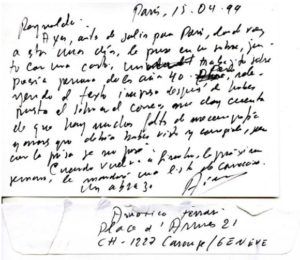 París, 15.04.99
Reynaldo:
Ayer, antes de salir para París, donde voy
a estar unos días, le puse en un sobre, jun-
to con una carta, un trabajo sobre
poesía peruana de los años 40.
yendo el texto impreso después de haber
puesto el sobre al correo, me doy cuenta
de que hay muchas faltas de mecanografía
que debía haber visto y corregido, pero
con la prisa se me pasó.
Cuando vuelva a Ginebra, la próxima
semana, le mandaré una lista de correcciones.
Un abrazo
Américo
Américo Ferrari
Place d'Armes 21
CH-1227 Carouge/GENÈVE